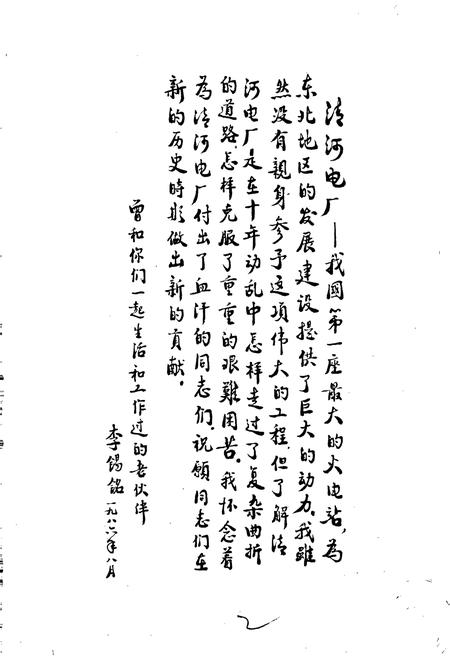 清河电厂—我國第一座最大的火电站,为
东北地区的发展建设提供了巨大的动力。我雖
然没有親身参予这项伟大的工程,但了解清
河电厂是在十年动乱中怎样走过了复杂曲折
的道路,怎样克服了重重的艰難困苦。我怀念着
为清河电厂付出了血汗的同志们,祝願同志们在
新的历史時期做出新的贡献。
曾和你们一起生活和工作过的老伙伴
李锡铭 一九八六年八月
2